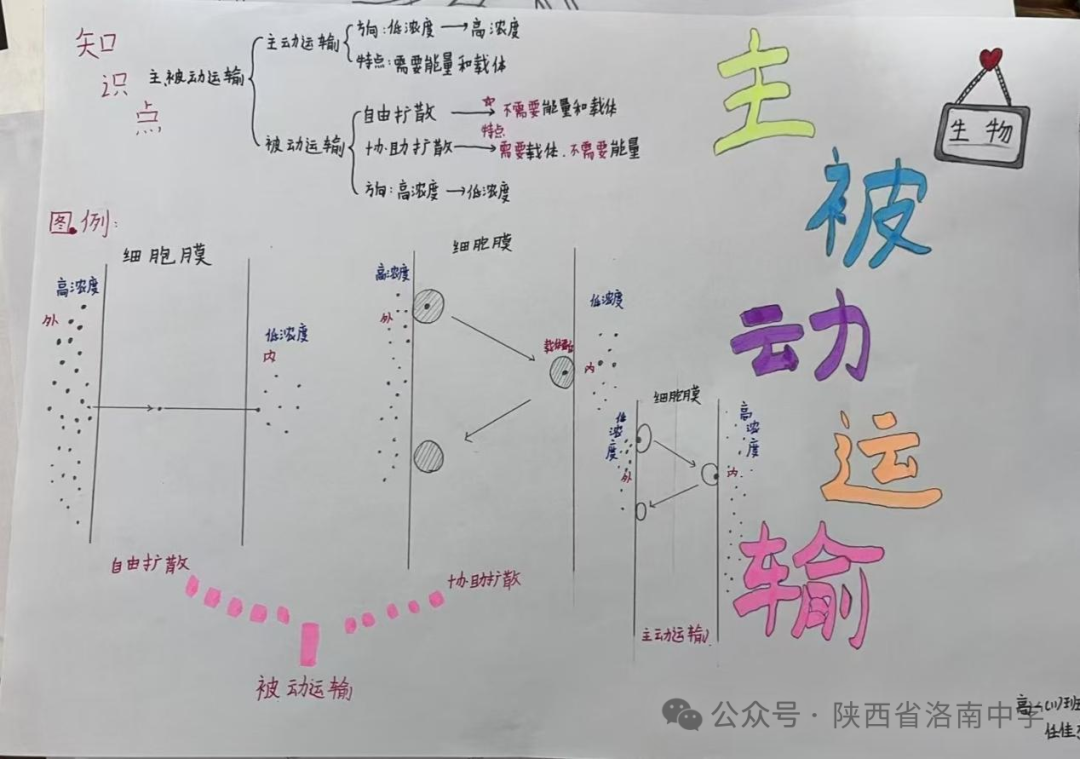 知识点
主、被动运输
主动运输
方向:低浓度→高浓度
特点:需要能量和载体
被动运输
自由扩散→不需要能量和载体
特点
协助扩散→需要载体、不需要能量
方向:高浓度→低浓度
主被动运输
生物
图例:
细胞膜
高浓度
外
低浓度
内
自由扩散
细胞膜
高浓度
外
载体蛋白
低浓度
内
协助扩散
被动运输
细胞膜
低浓度
外
高浓度
内
主动运输
公众号·陕西省洛南中学
高一(11)班
任佳